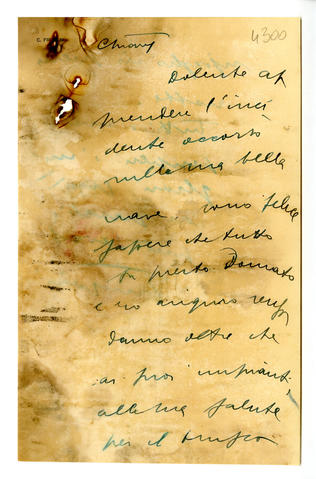 4300
Dolente ap
prendere l'inci
dente occorso
sulla sua bella
nave. sono felice
sapere che tutto
fu presto Domato
e mi auguro
danno oltre che
ai suoi impianti
alla sua salute
per il brusco